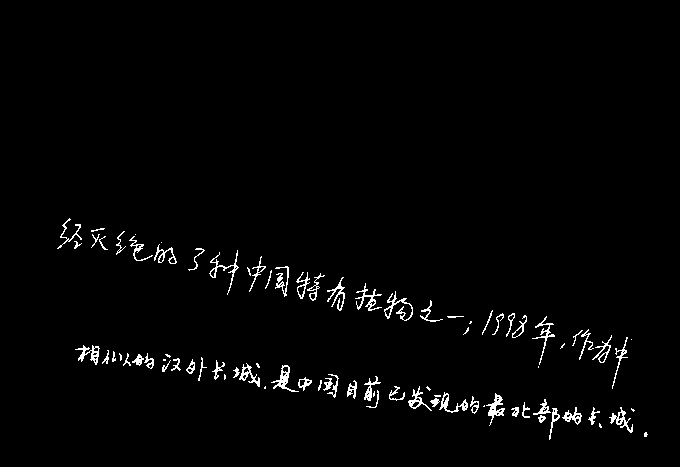 经灭绝的3种中国特有植物之一；1998年，作为中
相似的汉外长城，是中国目前已发现的最北部的长城。